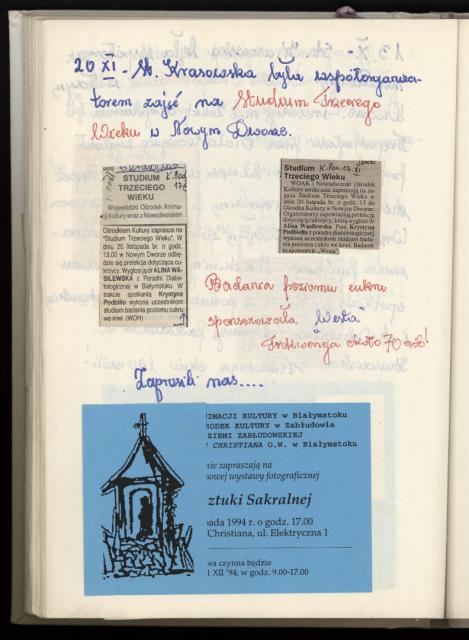 20 XI - M. Krasowska była współorganiza-
torem zajęć na Studium Trzeciego
Wieku w Nowym Dworze.
STUDIUM
TRZECIEGO
WIEKU
Wojewódzki Ośrodek Anima-
cji Kultury wraz z Nowodworskim
Ośrodkiem Kultury zaprasza na
"Studium Trzeciego Wieku". W
dniu 20 listopada br. o godz.
13.00 w Nowym Dworze odbę-
dzie się prelekcja dotycząca cu-
krzycy. Wygłosi ją dr ALINA WA-
SILEWSKA z Poradni Diabe-
tologicznej w Białymstoku. W
trakcie spotkania Krystyna
Podbiło wykona uczestnikom
studium badania poziomu cukru
we krwi. (WOH)
Studium K. Por. 17. XI
Trzeciego Wieku
WOAK i Nowodworski Ośrodek
Kultury serdecznie zapraszają na za-
jęcia Studium Trzeciego Wieku w
dniu 20 listopada br. o godz. 13 do
Ośrodka Kultury w Nowym Dworze.
Organizatorzy zapowiadają prelekcję
dotyczącą cukrzycy, którą wygłosi dr
Alina Wasilewska. Pani Krystyna
Podbiełło z poradni diabetologicznej
wykona uczestnikom studium bada-
nia poziomu cukru we krwi. Badanie
to sponsoruje
Badania poziomu cukru
sponsorowała "Westa"
Frekwencja około 70 osób!
Zaprosili nas....
NIMACJI KULTURY w Białymstoku
RODEK KULTURY w Zabłudowie
ZIEMI ZABŁUDOWSKIEJ
CHRISTIANA O.W. w Białymstoku
nie zapraszają na
sowej wystawy fotograficznej
ztuki Sakralnej
pada 1994 r. o godz. 17.00
Christiana, ul. Elektryczna 1
wa czynna będzie
XII '94; w godz. 9.00-17.00